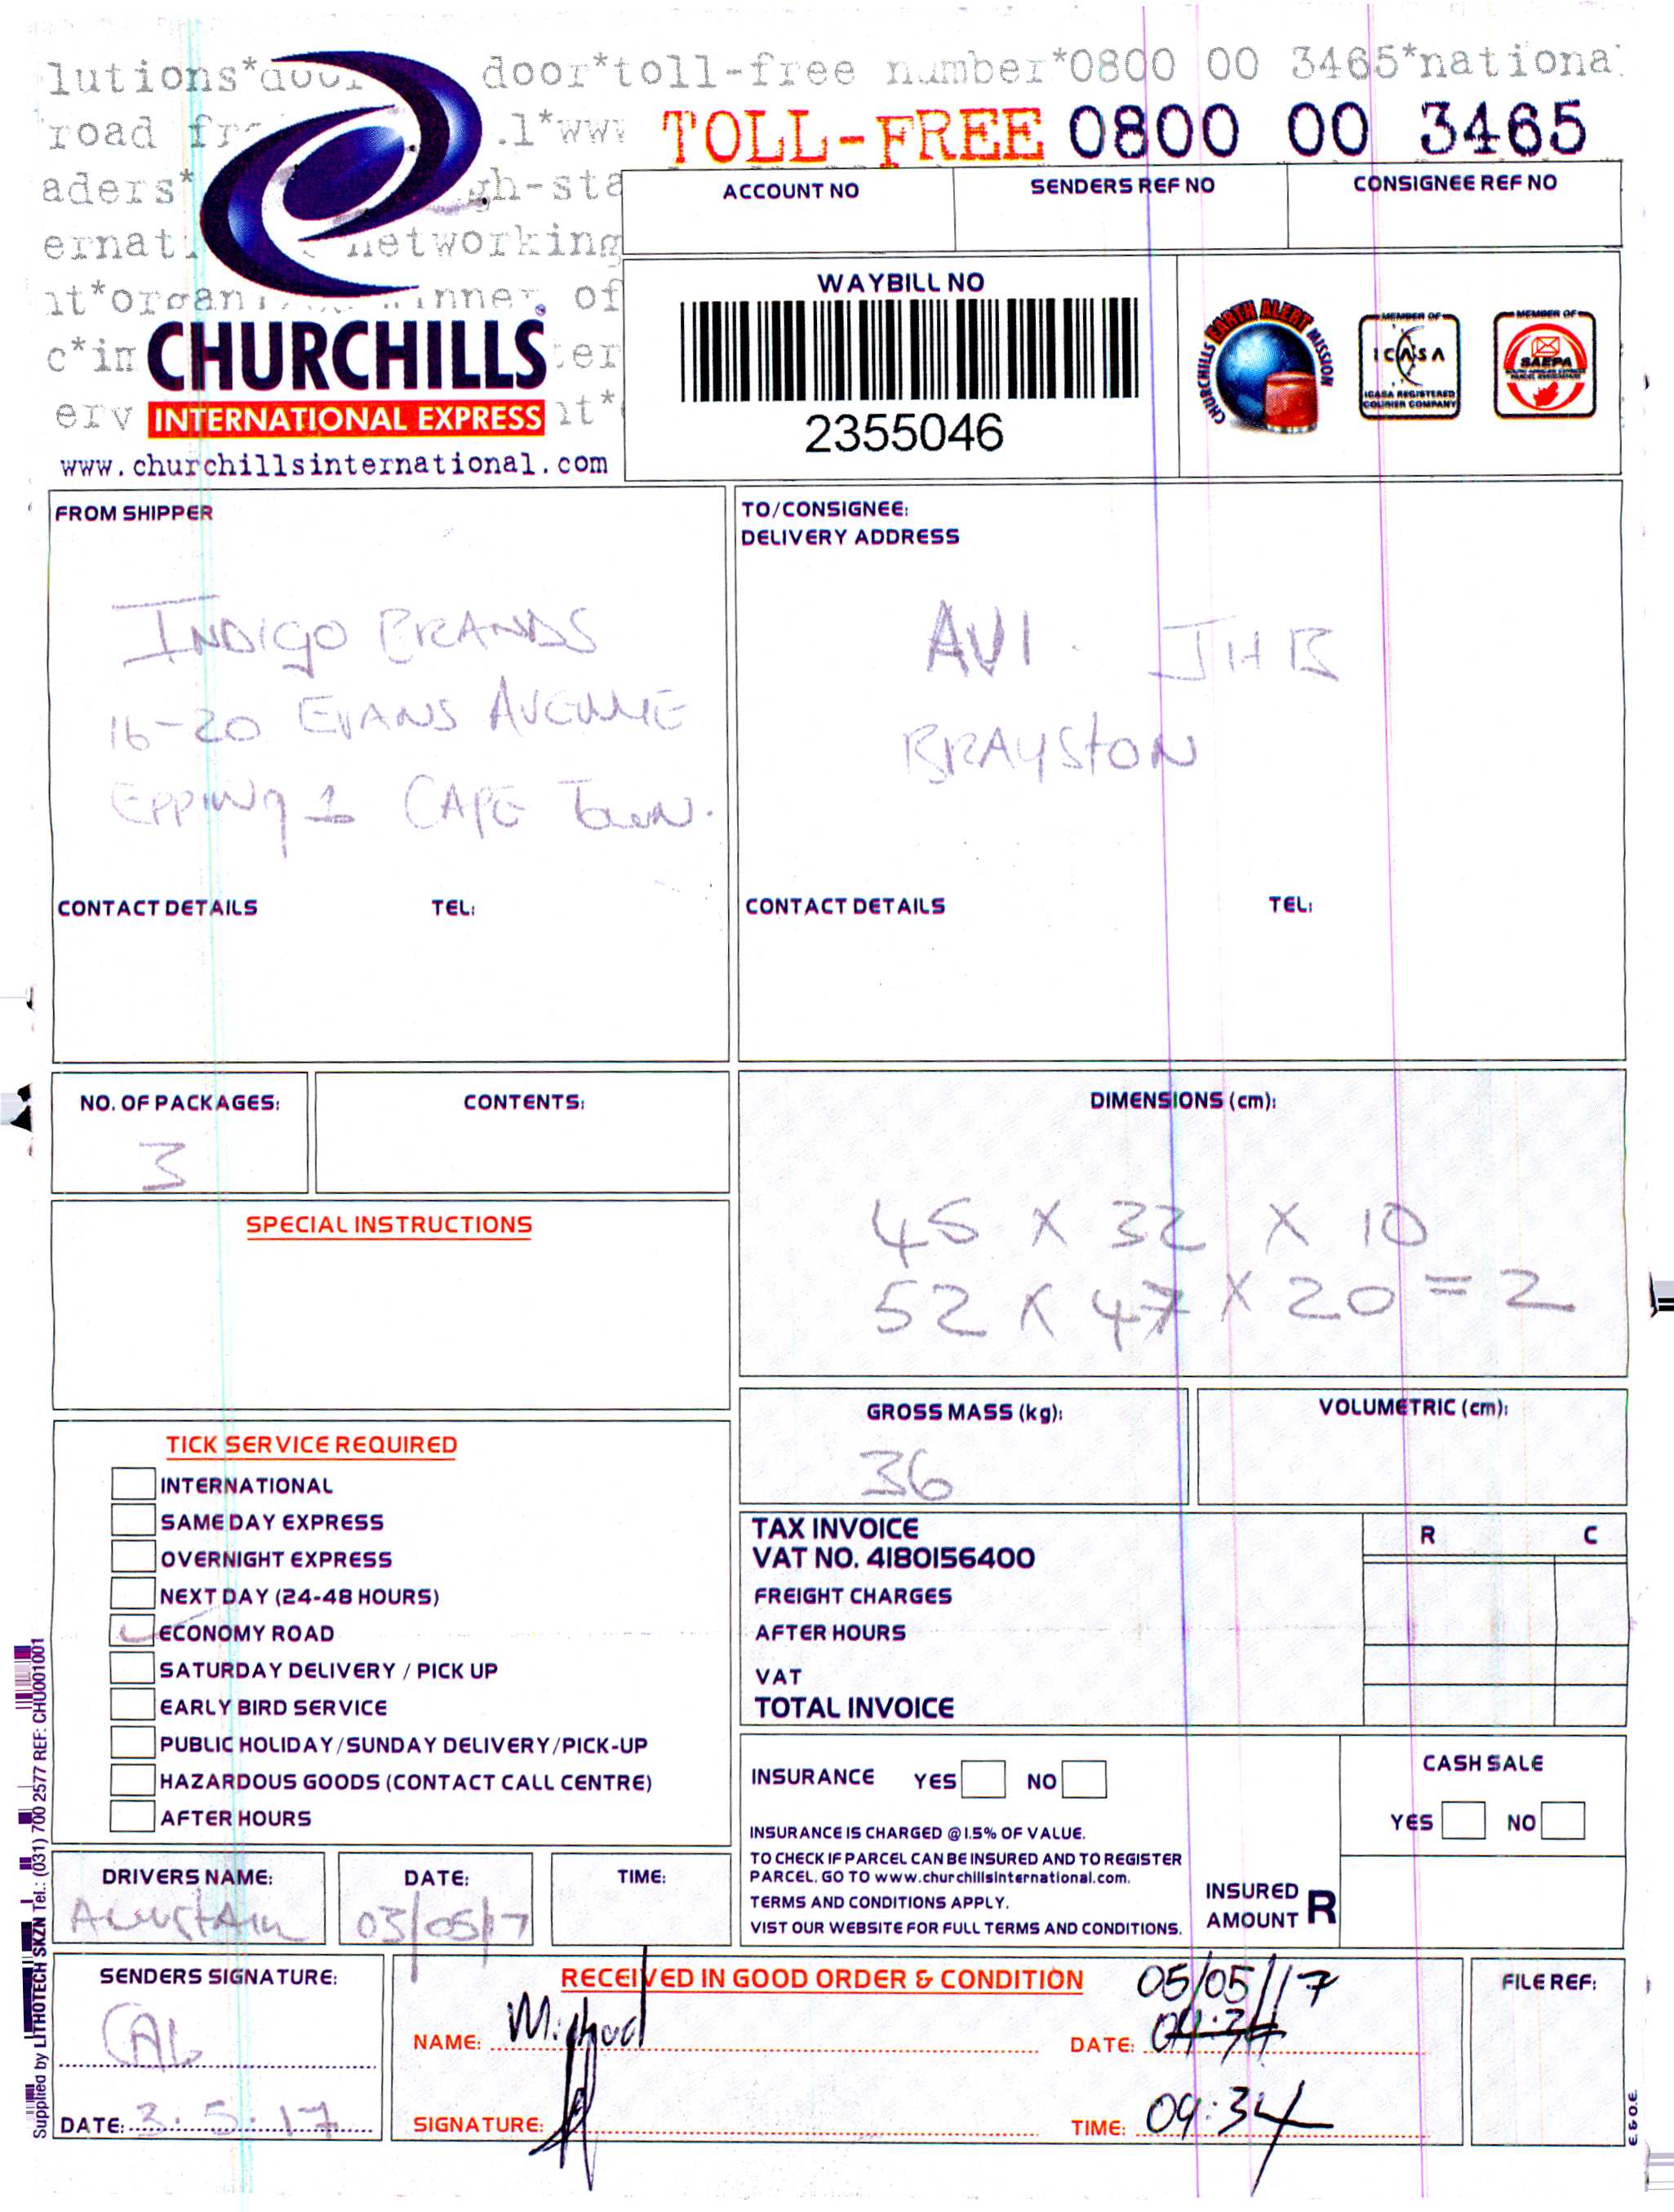 lutions*door door*toll-free number*0800 00 3465*national
road fr .l*www
TOLL-FREE 0800 00 3465
aders* gh-sta
ernat networking
nt*organ inner of
c*in ter
erv nt*
CHURCHILLS
INTERNATIONAL EXPRESS
www.churchillsinternational.com
ACCOUNT NO SENDERS REF NO CONSIGNEE REF NO
WAYBILL NO
2355046
CHURCHILLS EARTH ALERT MISSION
MEMBER OF
ICASA
ICASA REGISTERED
COURIER COMPANY
MEMBER OF
SAEPA
FROM SHIPPER
INDIGO BRANDS
16-20 EVANS AVENUE
EPPING 1 CAPE TOWN.
CONTACT DETAILS TEL:
TO/CONSIGNEE:
DELIVERY ADDRESS
AVI. JHB
BRAYSTON
CONTACT DETAILS TEL:
NO. OF PACKAGES: CONTENTS:
3
SPECIAL INSTRUCTIONS
DIMENSIONS (cm):
45 X 32 X 10
52 X 47 X 20 = 2
GROSS MASS (kg): VOLUMETRIC (cm):
36
TICK SERVICE REQUIRED
INTERNATIONAL
SAME DAY EXPRESS
OVERNIGHT EXPRESS
NEXT DAY (24-48 HOURS)
ECONOMY ROAD
SATURDAY DELIVERY / PICK UP
EARLY BIRD SERVICE
PUBLIC HOLIDAY/SUNDAY DELIVERY/PICK-UP
HAZARDOUS GOODS (CONTACT CALL CENTRE)
AFTER HOURS
TAX INVOICE R C
VAT NO. 4180156400
FREIGHT CHARGES
AFTER HOURS
VAT
TOTAL INVOICE
INSURANCE YES NO
INSURANCE IS CHARGED @ 1.5% OF VALUE.
TO CHECK IF PARCEL CAN BE INSURED AND TO REGISTER
PARCEL, GO TO www.churchillsinternational.com.
TERMS AND CONDITIONS APPLY.
VIST OUR WEBSITE FOR FULL TERMS AND CONDITIONS.
INSURED
AMOUNT R
CASH SALE
YES NO
DRIVERS NAME: DATE: TIME:
03/05/17
SENDERS SIGNATURE:
CAL
DATE: 3.5.17
RECEIVED IN GOOD ORDER & CONDITION
05/05/17
NAME: Michael DATE: 09:34
SIGNATURE: TIME: 09:34
FILE REF:
E & O.E.
Supplied by LITHOTECH SKZN Tel.: (031) 700 2577 REF: CHU001001